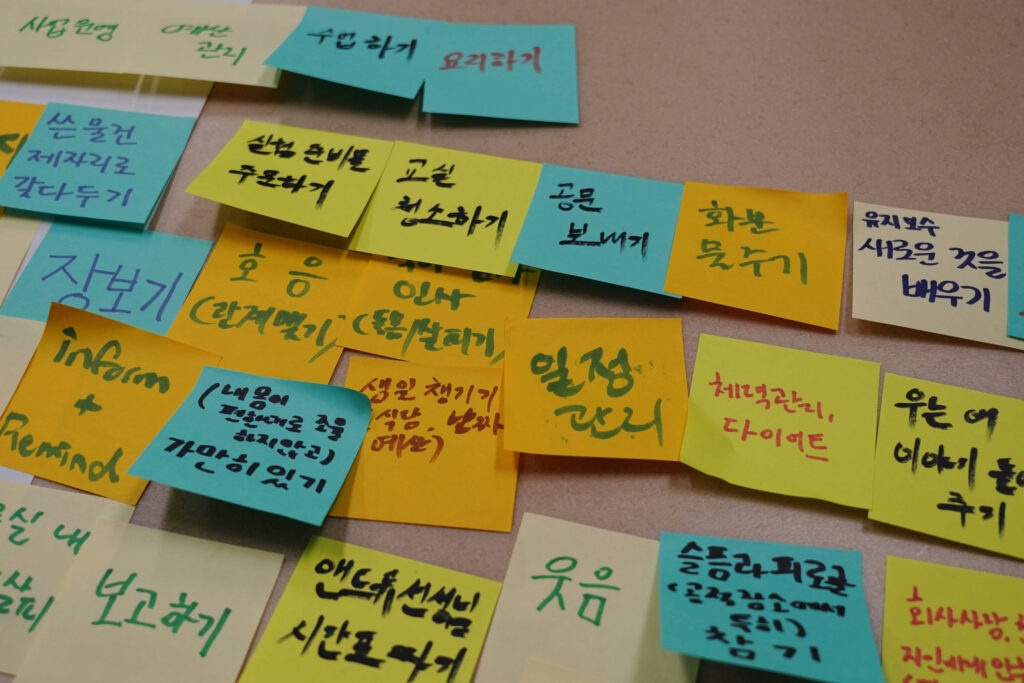 사업 운영
예산
관리
수업하기
요리하기
쓴 물건
제자리로
갖다두기
실험 준비물
주문하기
교실
청소하기
공문
보내기
화분
물주기
유지보수
새로운 것을
배우기
장보기
호응
(관계맺기)
인사
(돌봄/살피기)
inform
+
Remind
(내 몸이
편한대로 조율
하지않고)
가만히 있기
생일 챙기기
식당, 날짜
예쁜)
일정
관리
체력관리,
다이어트
우는 애
이야기 들어
주기
교실 내
살피
보고하기
앤드류선생님
시간표 짜기
웃음
슬픔과 피로를
(공적장소에서
특히)
참기
회사사람,
지인에게 안